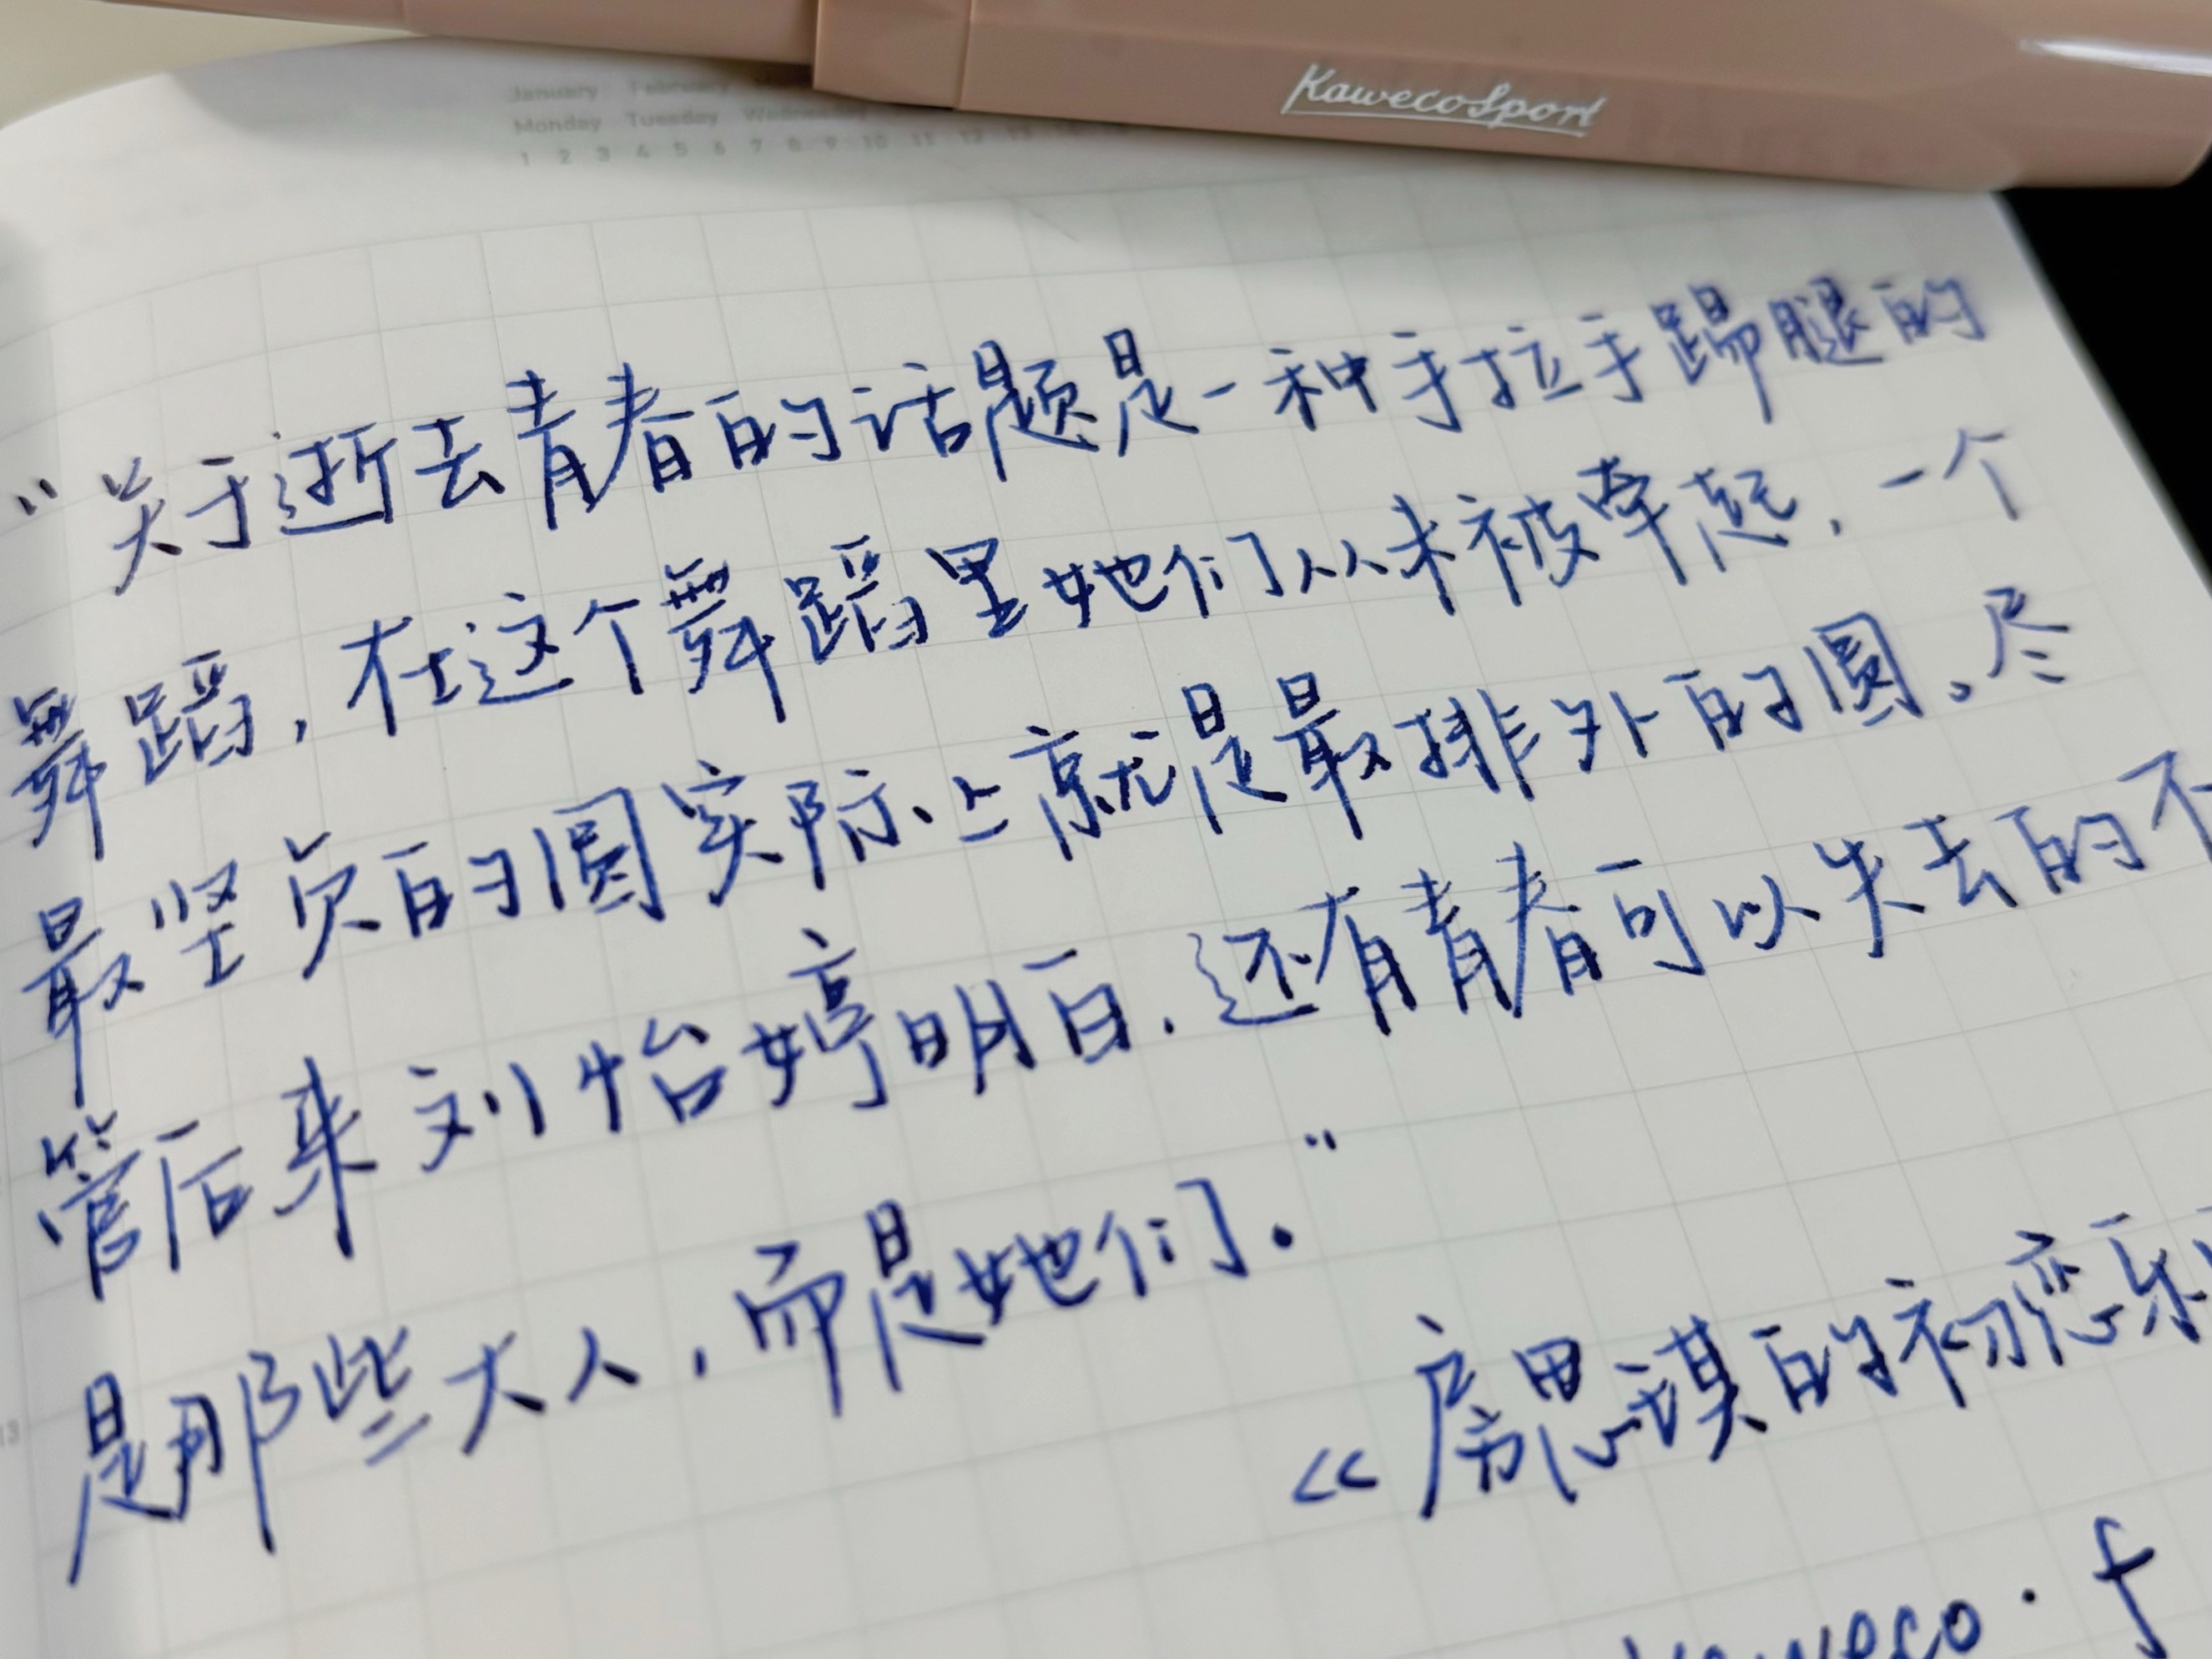 KawecoSport
January February
Monday Tuesday Wednesday
1 2 3 4 5 6 7 8 9 10 11 12 13
“关于逝去青春的话题是一种手拉手踢腿的
舞蹈,在这个舞蹈里她们从未被牵起,一个
最坚贞的圆实际上就是最排外的圆。尽
管后来刘怡婷明白,还有青春可以失去的不
是那些大人,而是她们.”
《房思琪的初恋乐
Kaweco · f
13